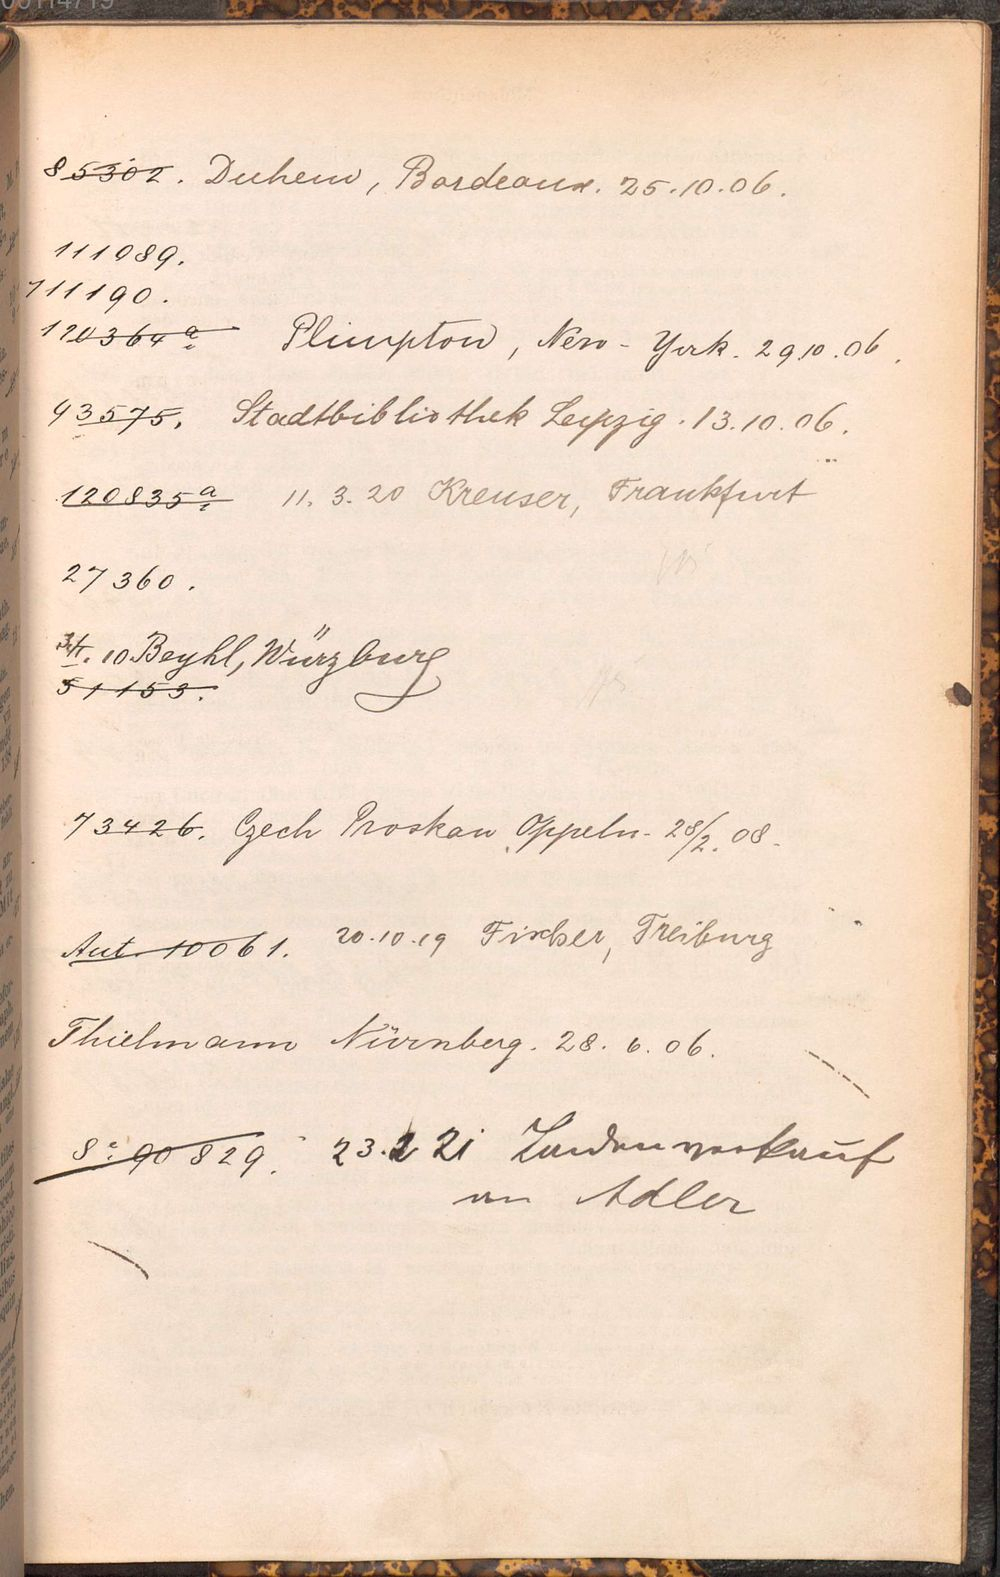 85302. Duhem, Bordeaux. 25.10.06.
111089.
111190.
120364 a Plimpton, New-York. 29.10.06.
93575. Stadtbibliothek Leipzig. 13.10.06.
120835 a 11.3.20 Kreuser, Frankfurt
27360.
10 Beyhl, Würzburg
51153.
73426. Czech Proskau Oppeln. 28/2.08.
Aut. 10061. 20.10.19 Fischer, Freiburg
Thielmann Nürnberg. 28.6.06.
8° 90829. 23.2 21 Ladenverkauf
an Adler